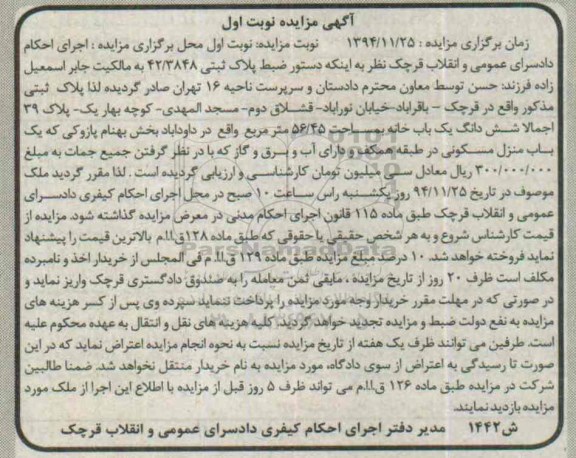 آگهی مزایده نوبت اول
زمان برگزاری مزایده : ۱۳۹۴/۱۱/۲۵ نوبت مزایده: نوبت اول محل برگزاری مزایده : اجرای احکام
دادسرای عمومی و انقلاب قرچک نظر به اینکه دستور ضبط پلاک ثبتی ۴۲/۳۸۴۸ به مالکیت جابر اسمعیل
زاده فرزند: حسن توسط معاون محترم دادستان و سرپرست ناحیه ۱۶ تهران صادر گردیده لذا پلاک ثبتی
مذکور واقع در قرچک - باقرآباد-خیابان نورآباد- قشلاق دوم- مسجد المهدی- کوچه بهار یک- پلاک ۳۹
اجمالا شش دانگ یک باب خانه بمساحت ۵۶/۴۵ متر مربع واقع در داودآباد بخش بهنام پازوکی که یک
باب منزل مسکونی در طبقه همکف و دارای آب و برق و گاز که با در نظر گرفتن جمیع جمات به مبلغ
۳۰۰/۰۰۰/۰۰۰ ریال معادل سی میلیون تومان کارشناسی و ارزیابی گردیده است . لذا مقرر گردید ملک
موصوف در تاریخ ۹۴/۱۱/۲۵ روز یکشنبه راس ساعت ۱۰ صبح در محل اجرای احکام کیفری دادسرای
عمومی و انقلاب قرچک طبق ماده ۱۱۵ قانون اجرای احکام مدنی در معرض مزایده گذاشته شود. مزایده از
قیمت کارشناس شروع و به هر شخص حقیقی یا حقوقی که طبق ماده ۱۲۸ق.ا.ا.م بالاترین قیمت را پیشنهاد
نماید فروخته خواهد شد. ۱۰ درصد مبلغ مزایده طبق ماده ۱۲۹ ق.ا.ا.م فی المجلس از خریدار اخذ و نامبرده
مکلف است ظرف ۲۰ روز از تاریخ مزایده ، مابقی ثمن معامله را به صندوق دادگستری قرچک واریز نماید و
در صورتی که در مهلت مقرر خریدار وجه مورد مزایده را پرداخت ننماید سپرده وی پس از کسر هزینه های
مزایده به نفع دولت ضبط و مزایده تجدید خواهد گردید. کلیه هزینه های نقل و انتقال به عهده محکوم علیه
است. طرفین می توانند ظرف یک هفته از تاریخ مزایده نسبت به نحوه انجام مزایده اعتراض نماید که در این
صورت تا رسیدگی به اعتراض از سوی دادگاه، مورد مزایده به نام خریدار منتقل نخواهد شد. ضمنا طالبین
شرکت در مزایده طبق ماده ۱۲۶ ق.ا.ا.م می تواند ظرف ۵ روز قبل از مزایده با اطلاع این اجرا از ملک مورد
مزایده بازدید نمایند.
ش۱۴۴۲ مدیر دفتر اجرای احکام کیفری دادسرای عمومی و انقلاب قرچک